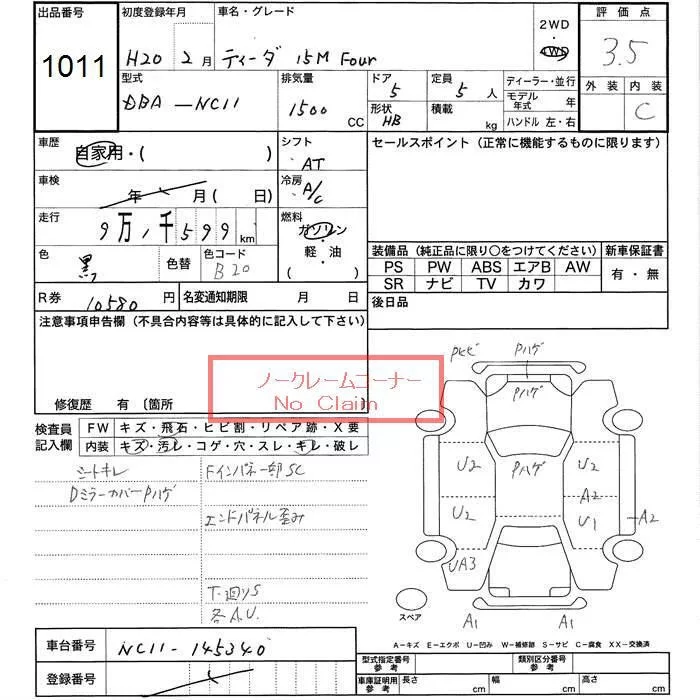 出品番号
1011
初度登録年月
H20 2月
車名・グレード
ティーダ 15M Four
2WD
・
4WD
評価点
3.5
外装 内装
C
型式
DBA-NC11
排気量
1500 CC
ドア
5
定員
5 人
形状
HB
積載
kg
ディーラー・並行
モデル年式 年
ハンドル 左・右
車歴
自家用・( )
シフト
AT
セールスポイント(正常に機能するものに限ります)
車検
年 月( 日)
冷房
A/C
走行
9万1千599km
燃料
ガソリン
軽・油
( )
色
黒
色替
色コード
B20
装備品(純正品に限り〇をつけてください)
新車保証書
PS PW ABS エアB AW
SR ナビ TV カワ
有・無
R券 10580 円
名変通知期限 月 日
後日品
注意事項申告欄(不具合内容等は具体的に記入して下さい)
ノークレームコーナー
No Claim
修復歴 有〔箇所
検査員記入欄
FW キズ・飛石・ヒビ割・リペア跡・X要
内装 キズ・汚レ・コゲ・穴・スレ・キレ・破レ
シートキレ
DミラーカバーPハゲ
Fインパネ一部SC
エンドパネル歪み
T・廻りS
各A.U.
Pヒビ Pハゲ
Pハゲ
Pハゲ
U2 U2
A2
U2 U1 A2
UA3
スペア
A1 A1
A-キズ E-エクボ U-凹み W-補修跡 S-サビ C-腐食 XX-交換済
車台番号 NC11-145340
登録番号
型式指定番号 参考
類別区分番号 参考
車庫証明用 参考
長さ cm
幅 cm
高さ cm